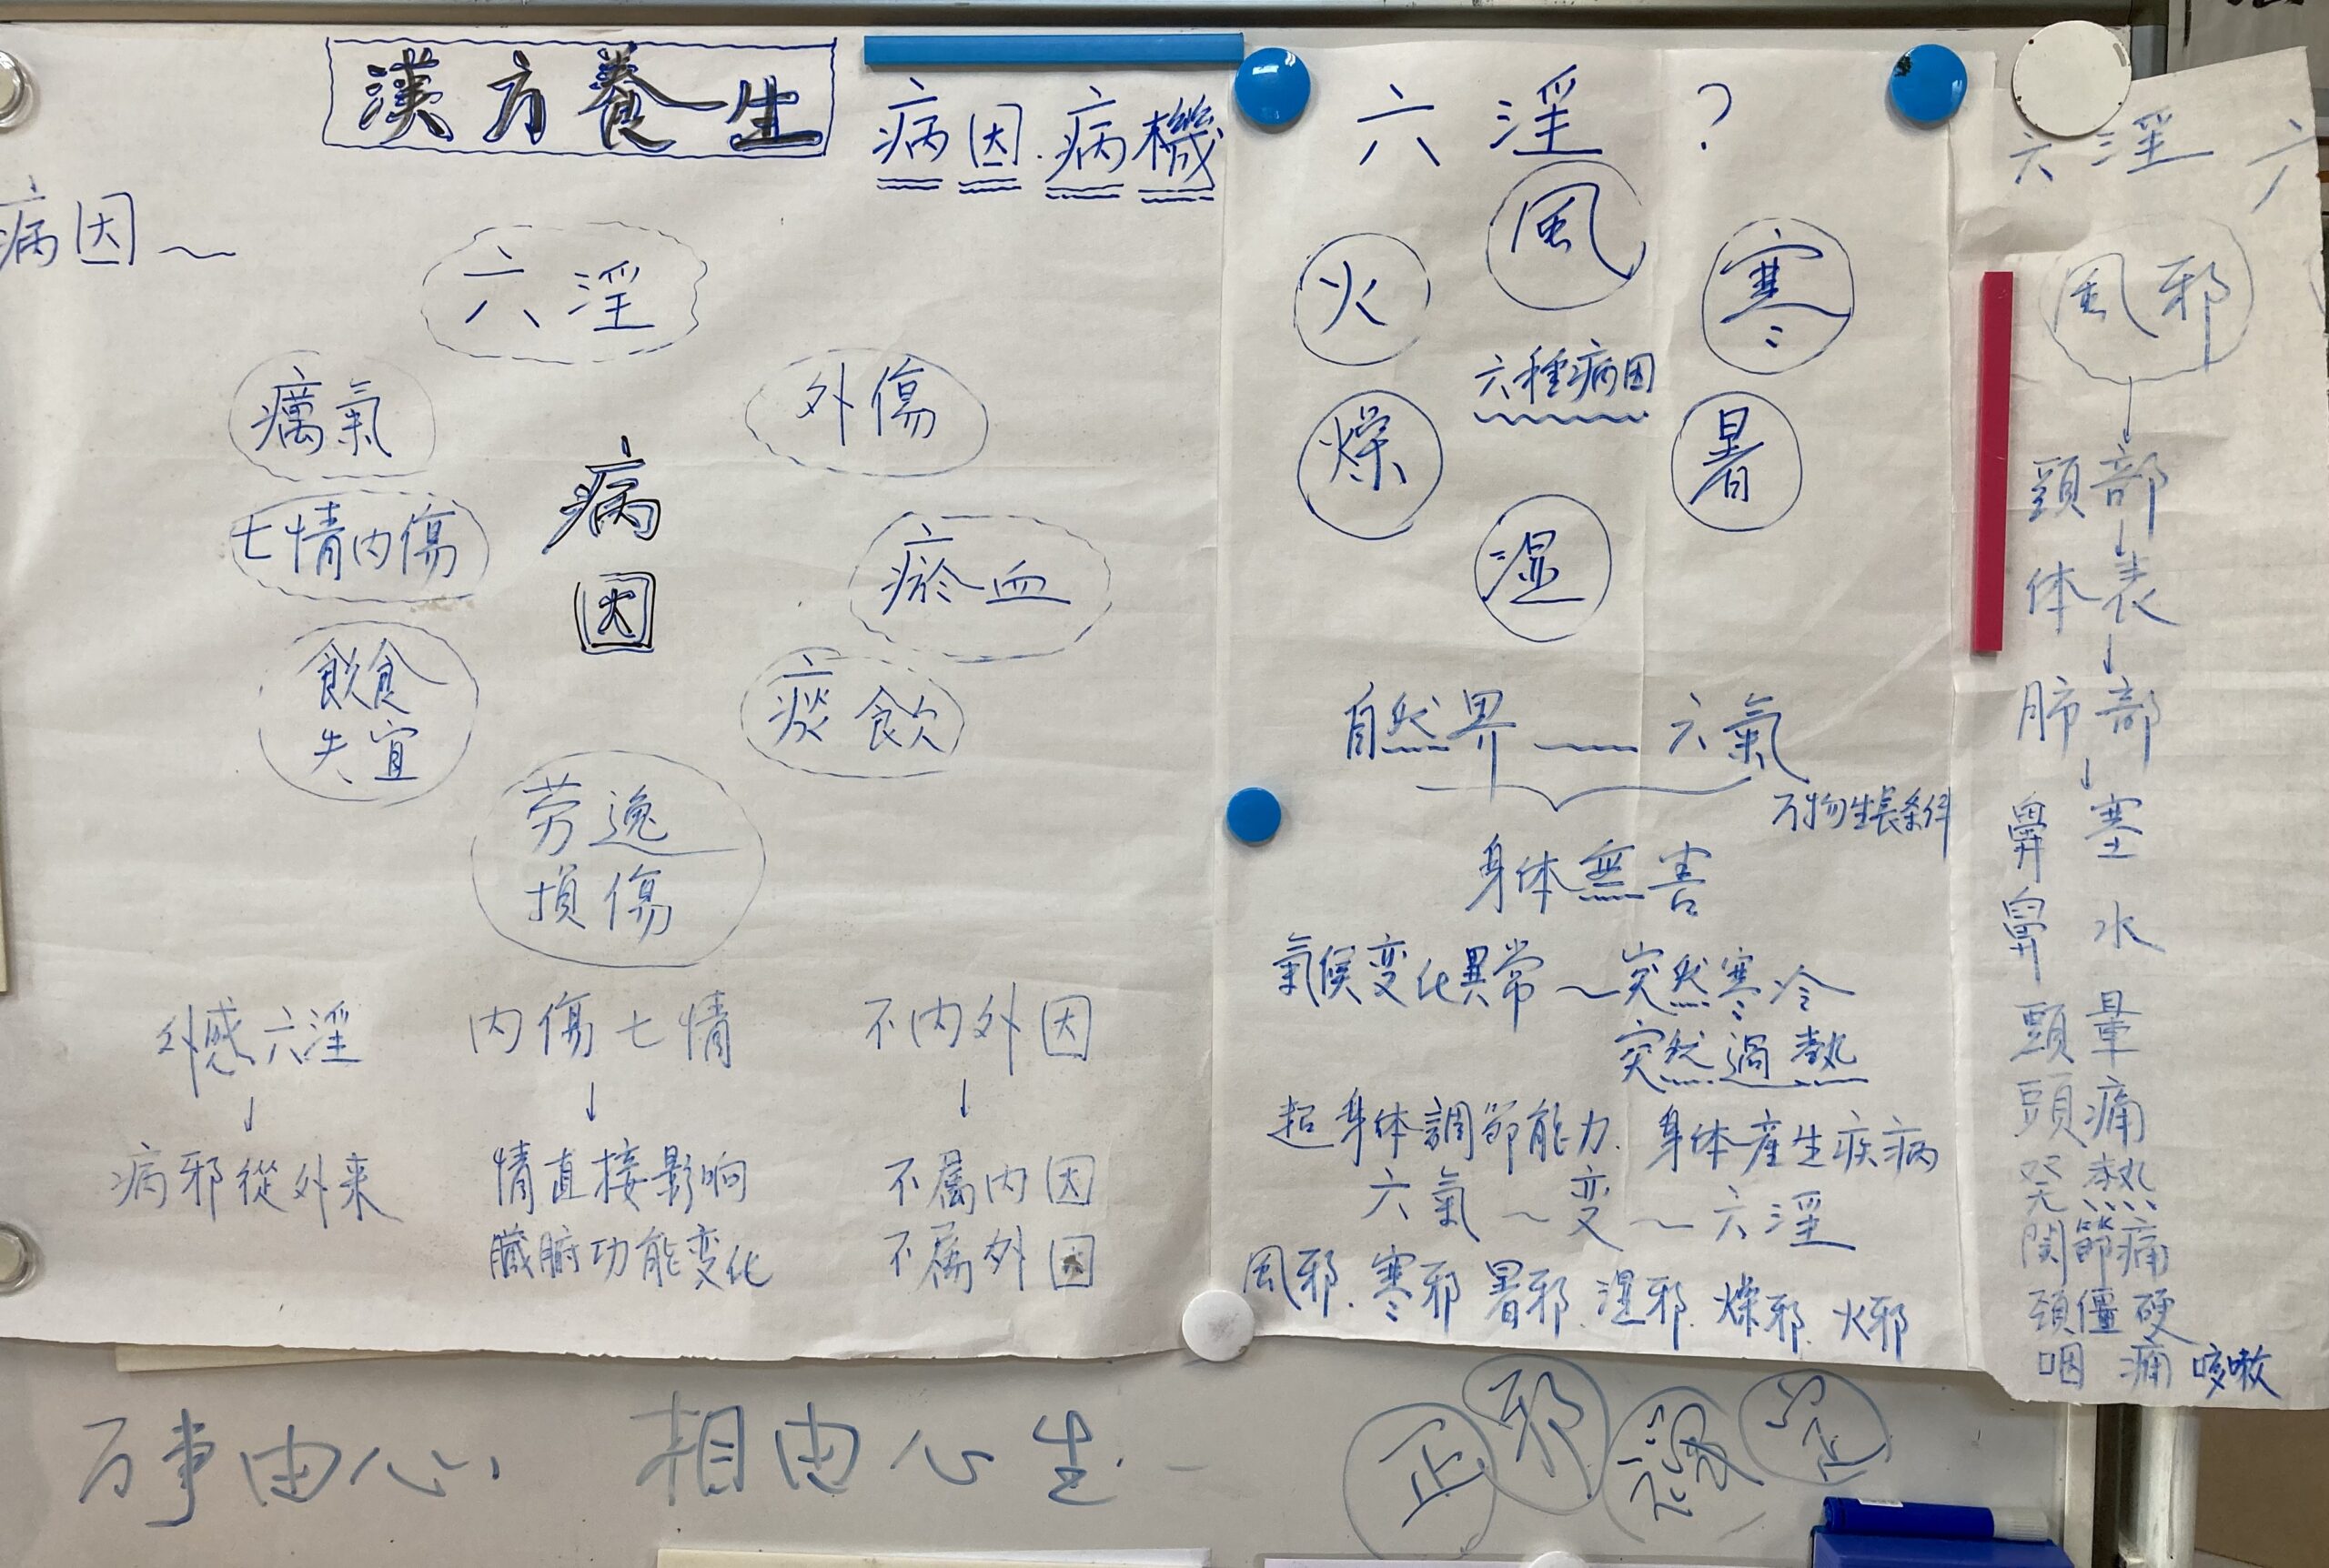 漢方養生
病因.病機
病因～
六淫
癘氣
外傷
七情内傷
病因
瘀血
飲食
失宜
痰飲
労逸
損傷
外感六淫
↓
病邪從外来
内傷七情
↓
情直接影响
臓腑功能変化
不内外因
↓
不属内因
不属外因
六淫?
風
火
寒
六種病因
燥
暑
湿
自然界——六氣
万物生長条件
身体無害
氣候变化異常～突然寒冷
突然過熱
超身体調節能力.身体産生疾病
六氣～变～六淫
風邪.寒邪 暑邪.湿邪.燥邪.火邪
六淫
風邪
↓
頚部
↓
体表
↓
肺部
↓
鼻塞
鼻水
頭暈
頭痛
発熱
関節痛
頚僵硬
咽痛 咳嗽
万事由心、相由心生
正
邪